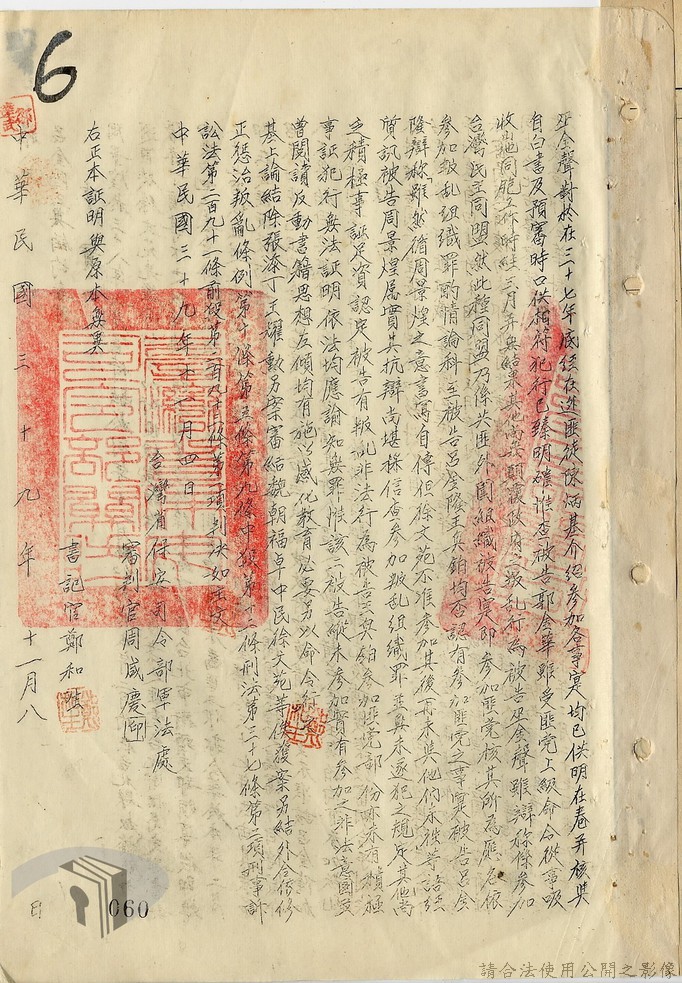 6
巫金聲對於在三十七年底經在逃匪徒陳炳基介紹參加各事實均已供明在卷并核與
自白書及預審時口供相符犯行已臻明確惟查被告郭金華雖受匪党上級命令從事吸
收山地同胞工作時經三月并無結果其他尚無顛覆政府之叛乱行為被告巫金聲雖辯稱係參加
台灣民主同盟然此種同盟乃係共匪外圍組織被告實即參加匪党核其所為應各依
參加叛乱組織罪酌情論科至被告呂金隆王兵鉑均否認有參加匪党之事實被告呂金
隆辯稱雖然循周景煌之意書寫自傳但徐文苑不准參加其後再未與他们來往等語經
質訊被告周景煌屬實其抗辯尚堪採信查參加叛乱組織罪並無未遂犯之規定其他尚
乏積極事証足資認定被告有叛乱非法行為被告王兵鉑參加匪党部份
事証犯行無法証明依法均應諭知無罪惟該二被告縱未參加實有參加之非法意圖且
曾閱讀反動書籍思想左傾均有施以感化教育必要另以命令行之
基上論結除張添丁王耀勳另案審結魏朝福卓中民徐文苑等俟獲案另結外合依修
正惩治叛亂條例第十條第五條第九條中級第十二條刑法第三十七條第二項刑事訴
訟法第二百九十一條前段第二百九十三條第一項判決如主文
中華民國三十九年十一月四日
台灣省保安司令部軍法處
審判官周咸慶印
右正本証明與原本無異
書記官鄭和
中華民國三十九年十一月八
日
060
請合法使用公開之影像